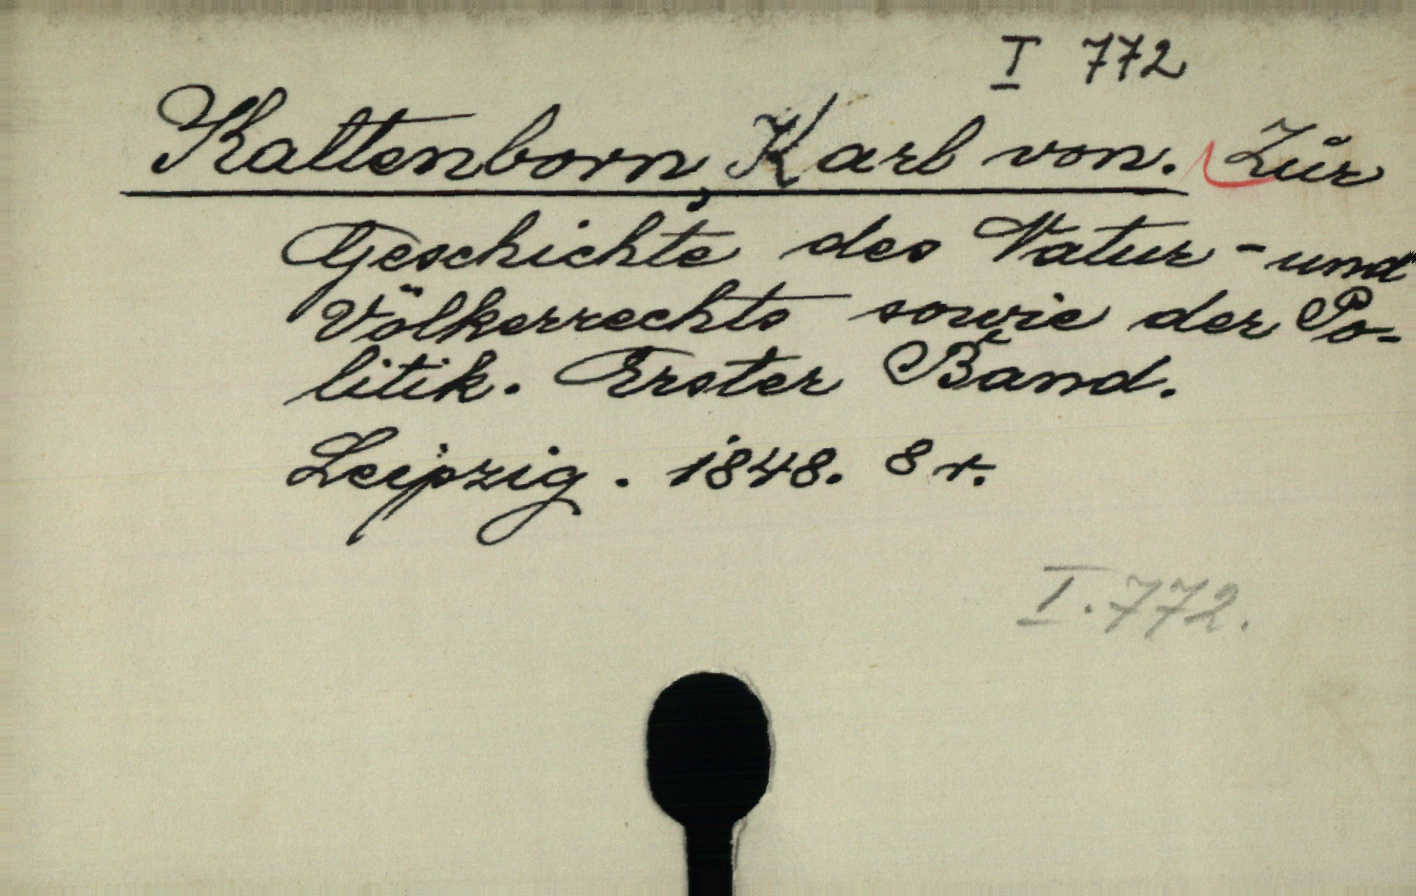 I 772
Kaltenborn, Karl von. Zur
Geschichte des Natur- und
Völkerrechts sowie der Po-
litik. Erster Band.
Leipzig. 1848. 8 r.
I. 772.